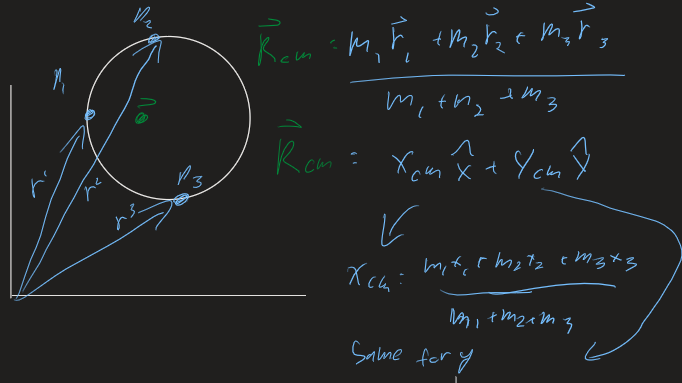 m₂
m₁
m₃
r¹
r²
r³
R⃗cm = m₁r⃗₁ + m₂r⃗₂ + m₃r⃗₃
m₁ + m₂ + m₃
R⃗cm = Xcm x̂ + Ycm ŷ
Xcm = m₁x₁ + m₂x₂ + m₃x₃
m₁ + m₂ + m₃
Same for y